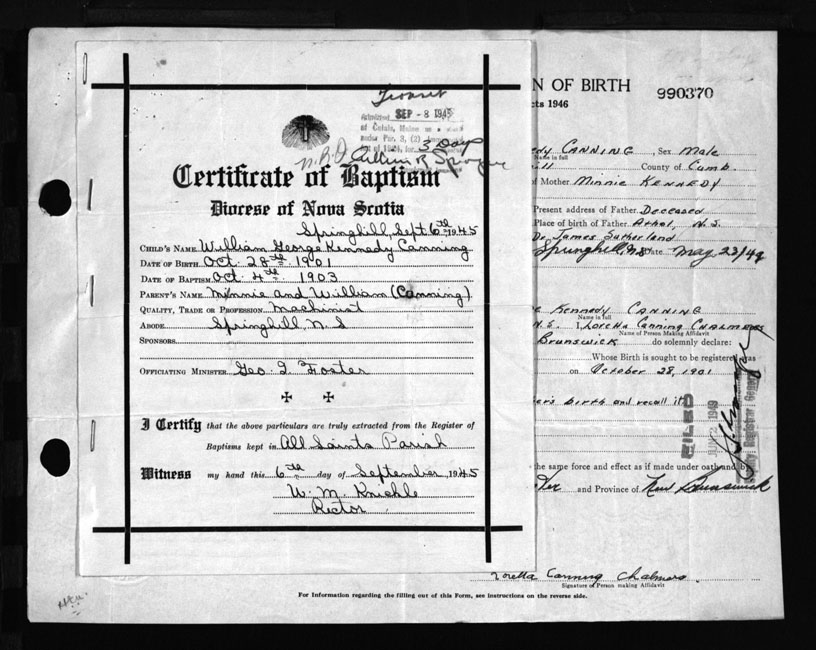 Transit
Admitted SEP - 8 1945
at Calais, Maine as a
under Par. 3, (2)
act of 1924, for 3 Days
Certificate of Baptism
Diocese of Nova Scotia
Springhill, Sept. 6th 1945
CHILD'S NAME William George Kennedy Canning
DATE OF BIRTH Oct. 28th 1901
DATE OF BAPTISM Oct 4th 1903
PARENT'S NAME Minnie and William (Canning)
QUALITY, TRADE OR PROFESSION Machinist
ABODE Springhill N.S
SPONSORS
OFFICIATING MINISTER Geo. I Foster
I Certify that the above particulars are truly extracted from the Register of
Baptisms kept in All Saints Parish
Witness my hand this 6th day of September 1945
W. M. Knichle
Rector
N OF BIRTH
990370
cts 1946
edy CANNING, Sex Male
Name in full
ill County of Cumb.
of Mother Minnie KENNEDY
Present address of Father Deceased
Place of birth of Father Athol, N.S.
Dr James Sutherland
Springhill, NS Date May 23/49
ge Kennedy CANNING
Name in full
N.S. I, Loretta Canning CHALMERS
Name of Person Making Affidavit
Brunswick do solemnly declare:
Whose Birth is sought to be registered was
on October 28, 1901
er's birth and recall it
FILED
1949
Registrar General
the same force and effect as if made under oath and by
and Province of New Brunswick
Loretta Canning Chalmers
Signature of Person making Affidavit
For Information regarding the filling out of this Form, see instructions on the reverse side.